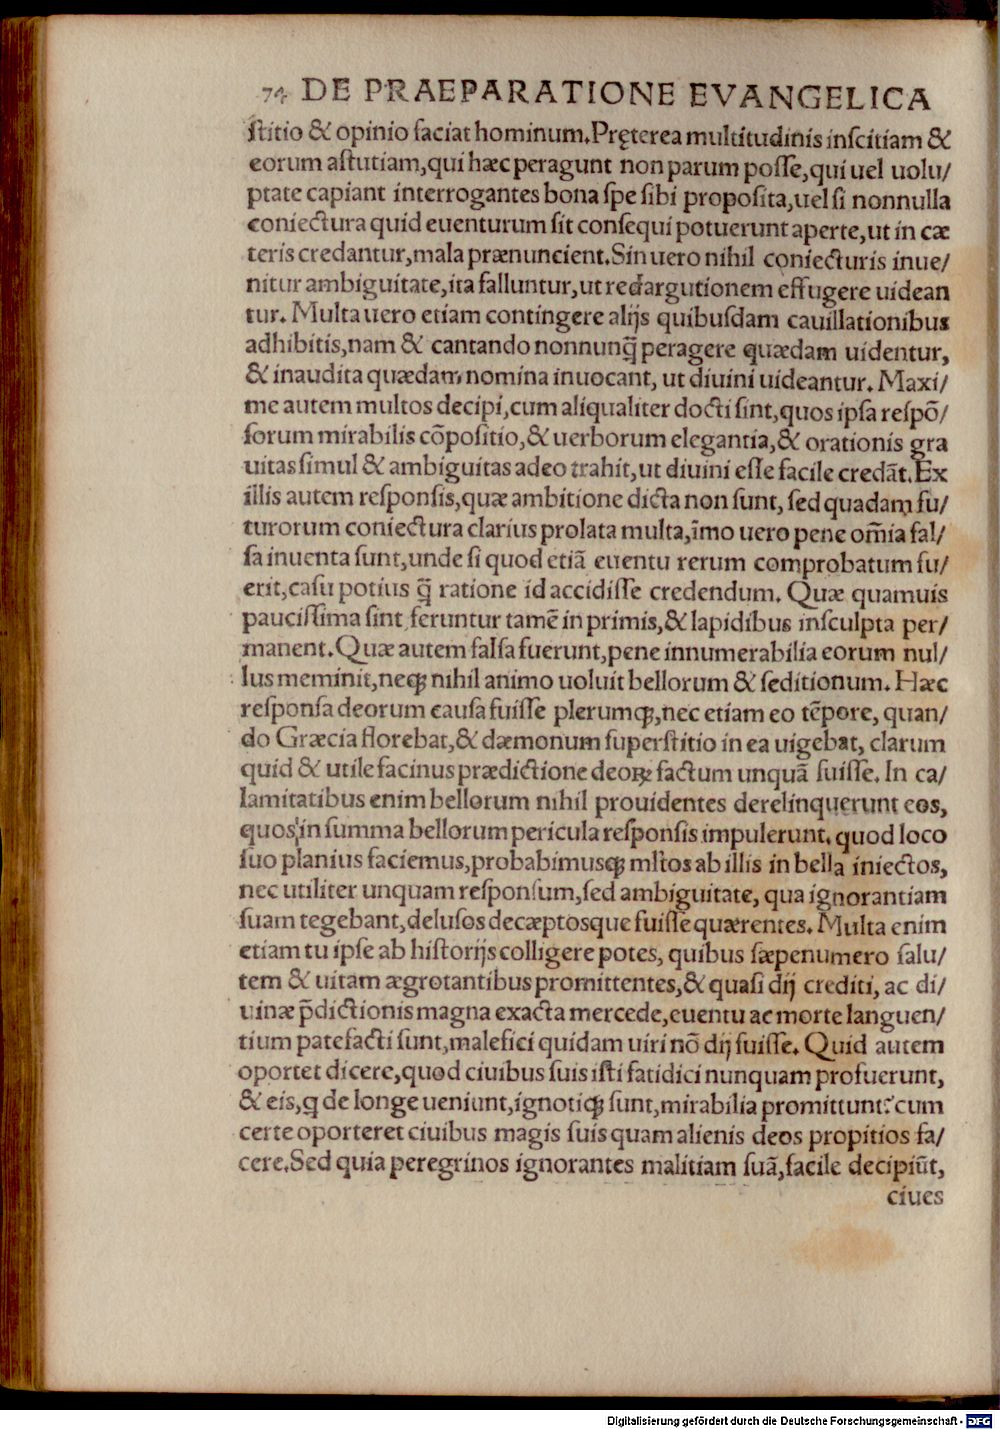 74 DE PRAEPARATIONE EVANGELICA
ſtitio & opinio faciat hominum. Pręterea multitudinis inſcitiam &
eorum aſtutiam, qui hæc peragunt non parum poſſe, qui uel uolu/
ptate capiant interrogantes bona ſpe ſibi propoſita, uel ſi nonnulla
coniectura quid euenturum ſit conſequi potuerunt aperte, ut in cæ
teris credantur, mala prænuncient. Sin uero nihil coniecturis inue/
nitur ambiguitate, ita falluntur, ut redargutionem effugere uidean
tur. Multa uero etiam contingere alijs quibuſdam cauillationibus
adhibitis, nam & cantando nonnunq̃ peragere quædam uidentur,
& inaudita quædam nomina inuocant, ut diuini uideantur. Maxi/
me autem multos decipi, cum aliqualiter docti ſint, quos ipſa reſpõ/
ſorum mirabilis cõpoſitio, & uerborum elegantia, & orationis gra
uitas ſimul & ambiguitas adeo trahit, ut diuini eſſe facile credãt. Ex
illis autem reſponſis, quæ ambitione dicta non ſunt, ſed quadam fu/
turorum coniectura clarius prolata multa, ĩmo uero pene om̃ia fal/
ſa inuenta ſunt, unde ſi quod etiã euentu rerum comprobatum fu/
erit, caſu potius q̃ ratione id accidiſſe credendum. Quæ quamuis
pauciſſima ſint feruntur tamẽ in primis, & lapidibus inſculpta per/
manent. Quæ autem falſa fuerunt, pene innumerabilia eorum nul/
lus meminit, neqꝫ nihil animo uoluit bellorum & ſeditionum. Hæc
reſponſa deorum cauſa fuiſſe plerumqꝫ, nec etiam eo tẽpore, quan/
do Græcia florebat, & dæmonum ſuperſtitio in ea uigebat, clarum
quid & utile facinus prædictione deoꝝ factum unquã fuiſſe. In ca/
lamitatibus enim bellorum nihil prouidentes derelinquerunt eos,
quos in ſumma bellorum pericula reſponſis impulerunt. quod loco
ſuo planius faciemus, probabimusqꝫ ml̃tos ab illis in bella iniectos,
nec utiliter unquam reſponſum, ſed ambiguitate, qua ignorantiam
ſuam tegebant, deluſos decæptosque fuiſſe quærentes. Multa enim
etiam tu ipſe ab hiſtorijs colligere potes, quibus ſæpenumero ſalu/
tem & uitam ægrotantibus promittentes, & quaſi dij crediti, ac di/
uinæ p̃dictionis magna exacta mercede, euentu ac morte languen/
tium patefacti ſunt, malefici quidam uiri nõ dij fuiſſe. Quid autem
oportet dicere, quod ciuibus ſuis iſti fatidici nunquam profuerunt,
& eis, q de longe ueniunt, ignotiqꝫ ſunt, mirabilia promittunt? cum
certe oporteret ciuibus magis ſuis quam alienis deos propitios fa/
cere. Sed quia peregrinos ignorantes malitiam ſuã, facile decipiũt,
ciues
Digitalisierung gefördert durch die Deutsche Forschungsgemeinschaft - DFG